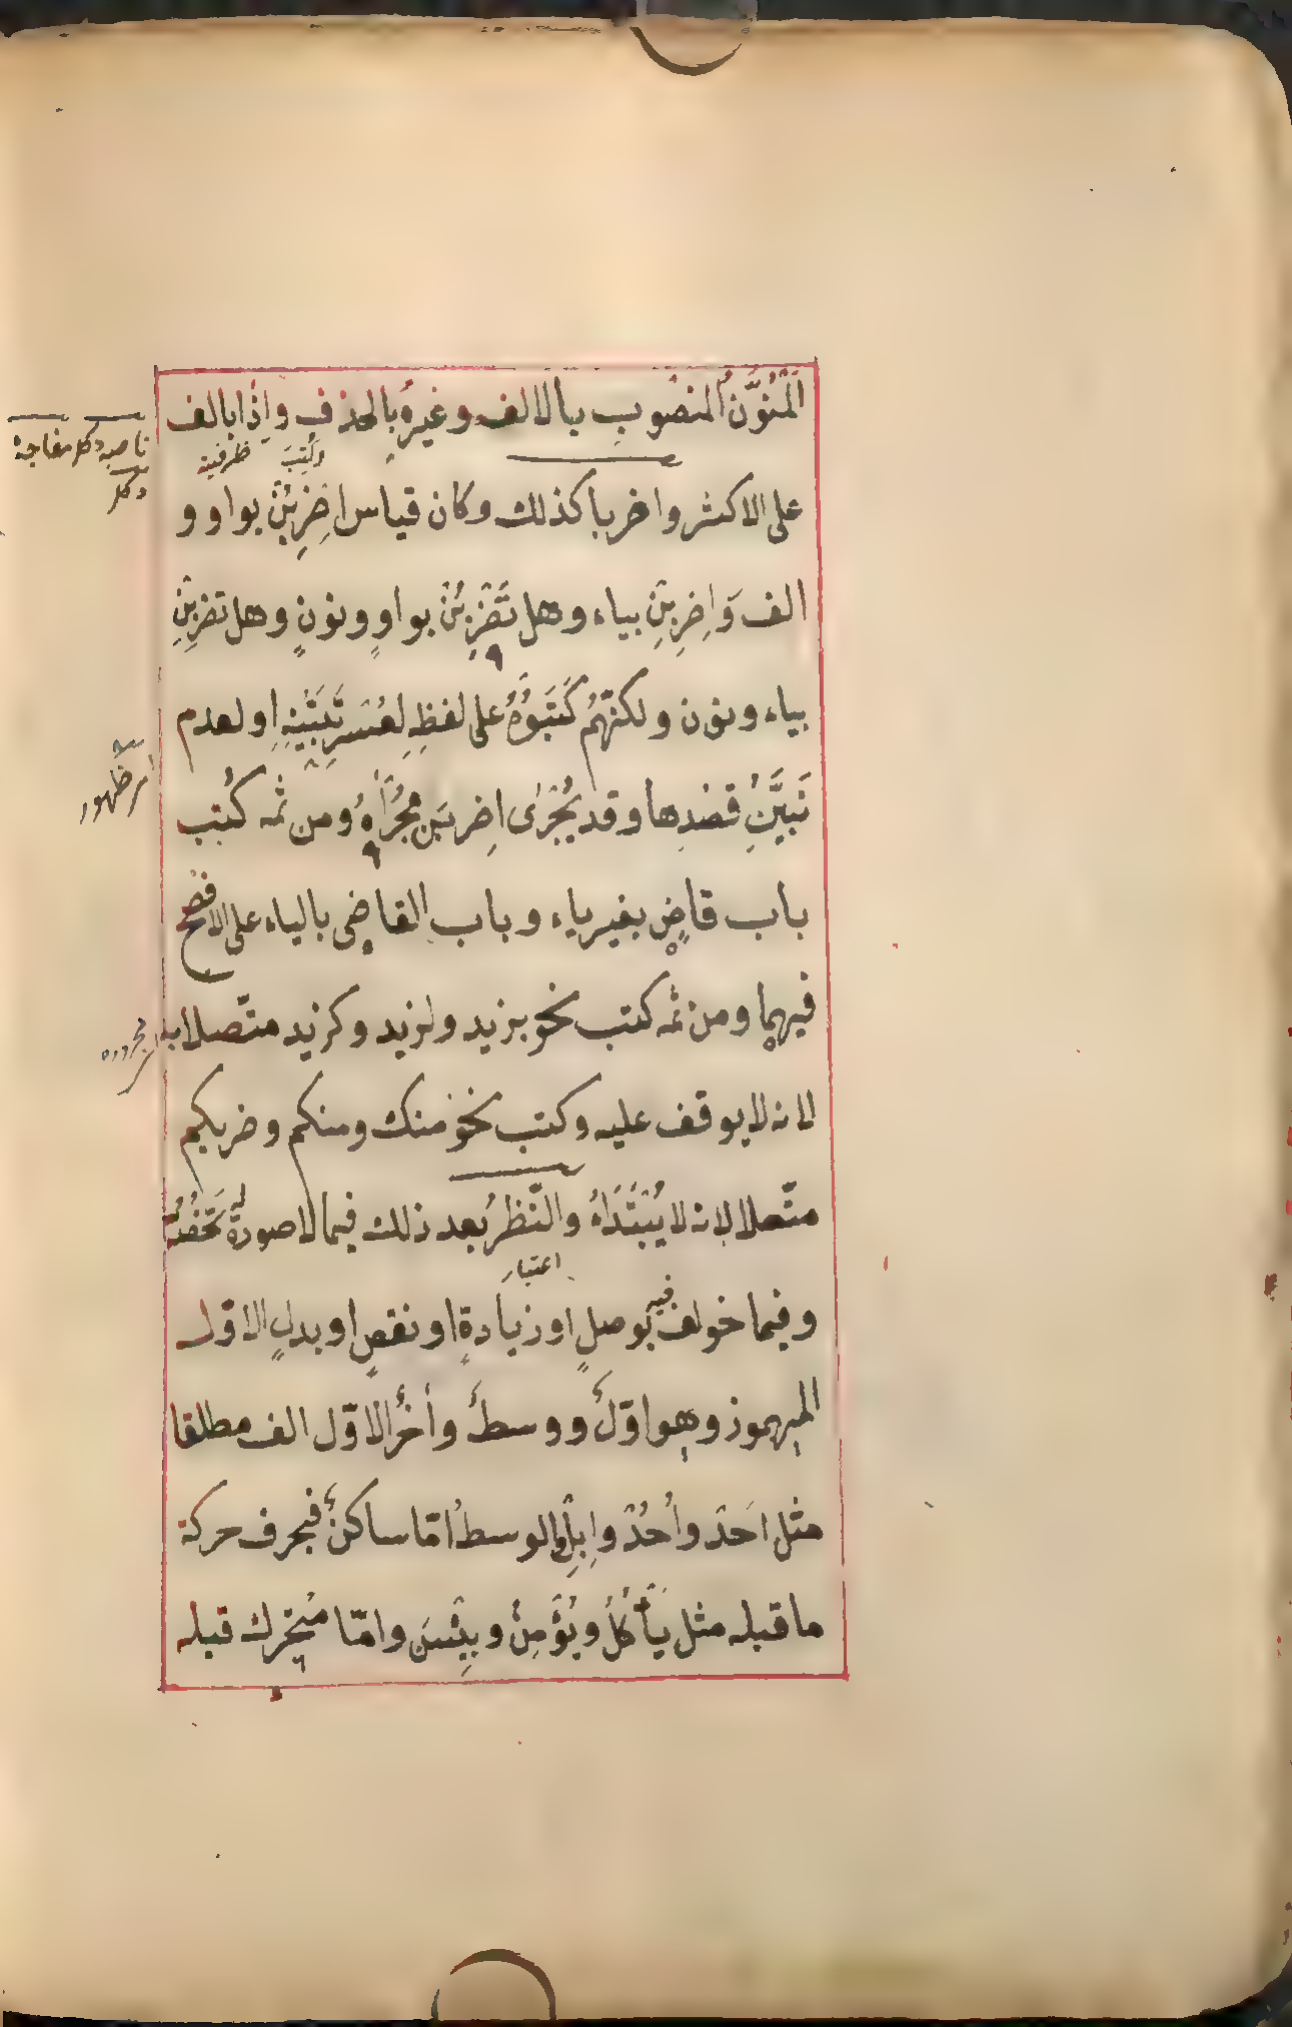 المُنَوَّنُ المنصُوبِ بالالف وغيرهُ بالحذفِ وإذًا بالف
وكُتِبَ ظرفية
ناصبه دكل مفاجة
دكلر
على الاكثر واضربا كذلك وكان قياس اضرِبُنْ بواو و
الف وَاضِرِبِنْ بياء وهل تَضْرِبُنْ بواوٍ ونونٍ وهل تضرِبِنْ
بياء ونون ولكنّهُم كَتَبَوُهُ على لفظِهِ لعُسْرِ تَبَيُّنِهِ اولعدم
تَبَيُّنِ قصْدِها وقد يُجْرٰى اضرِبَن مُجْرَاهُ ومن ثمه كُتب
ظهور
باب قاضٍ بغير ياء وباب القاضِى بالياء على الافصح
فيهما ومن ثمه كتب نحو بزيد ولزيد وكزيد متّصلا به
مجروره
لانه لا يوقف عليه وكتب نحو منك ومنكم وضربكم
متّصلا لانه لا يُبْتَدَاءُ والنّظرُ بعد ذلك فيما لا صورة لَه تَخُصُّهُ
اعتبار
وفيما خولف فيه بوصلٍ او زيادةٍ او نقصٍ او بدلٍ الاوّل
المهموز وهو اوّلٌ ووسطٌ وأخرٌ الاوّل الف مطلقا
مثل اَحَدْ واُحُدْ واِبِلْ والوسطُ امّا ساكنٌ فبحرف حركة
ما قبله مثل يَأْكُلُ ويُؤْمِنُ وبِئْسَ وامّا متحرك قبله